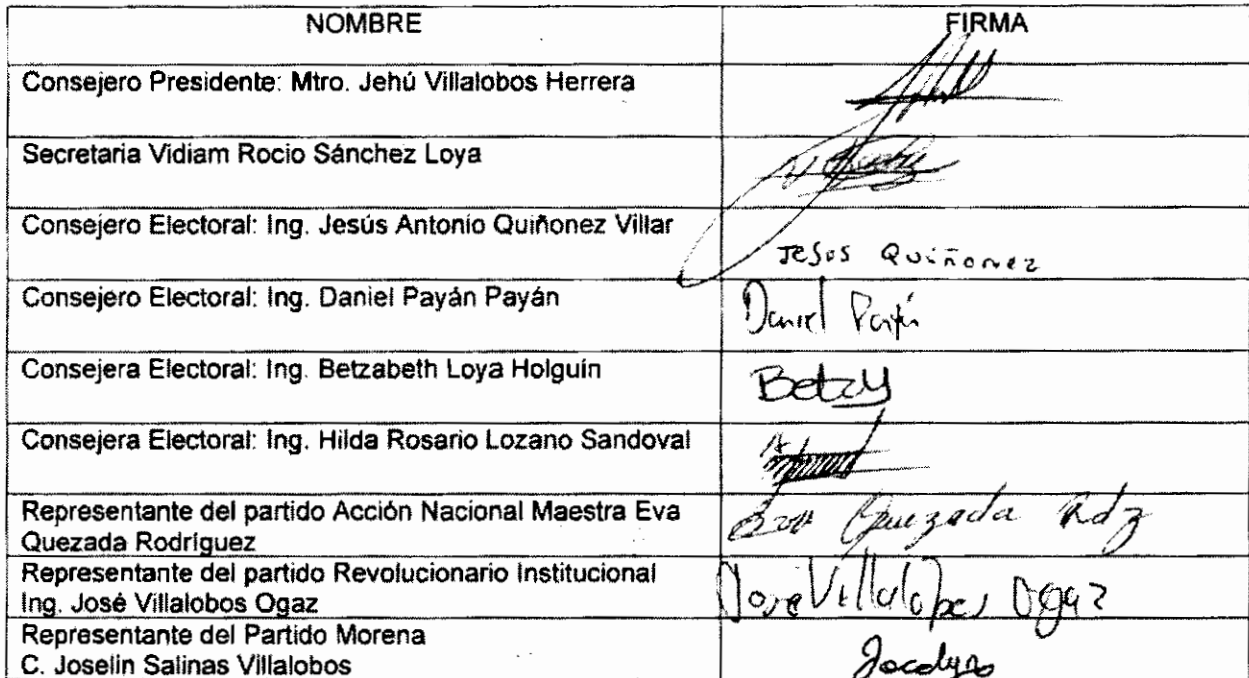 NOMBRE
FIRMA
Consejero Presidente: Mtro. Jehú Villalobos Herrera
Secretaria Vidiam Rocio Sánchez Loya
Consejero Electoral: Ing. Jesús Antonio Quiñonez Villar
Jesus Quiñonez
Consejero Electoral: Ing. Daniel Payán Payán
Daniel Payán
Consejera Electoral: Ing. Betzabeth Loya Holguín
Betzy
Consejera Electoral: Ing. Hilda Rosario Lozano Sandoval
Representante del partido Acción Nacional Maestra Eva
Quezada Rodríguez
Eva Quezada Rdz
Representante del partido Revolucionario Institucional
Ing. José Villalobos Ogaz
José Villalobos Ogaz
Representante del Partido Morena
C. Joselin Salinas Villalobos